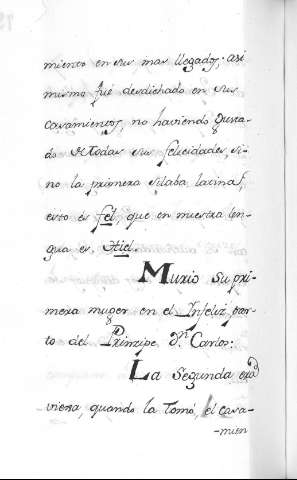 miento en sus mas llegados; asi
mismo fué desdichado en sus
casamientos, no haviendo gusta-
do de todas sus felicidades, si-
no la primera silaba latina,
esto es fel, que en nuestra len-
gua es Hiel.
Murio su pri-
mera muger en el Infeliz par-
to del Principe Dn. Carlos:
La Segunda era
viexa, quando la tomó, el casa-
-mien